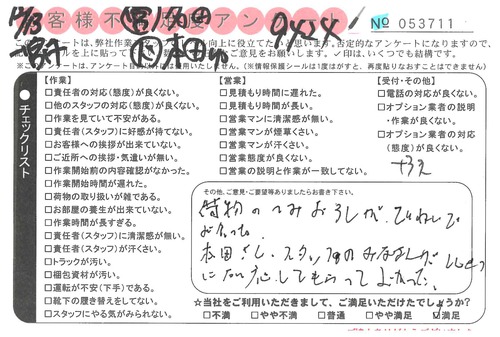 12/13
9424
お客様不満度アン
№ 053711
このアンケートは、弊社作業スタッフの向上に役立てたいと思います。否定的なアンケートになりますので、
ご意見をお願いします。✓印は、いくつでも結構です。
※このアンケートは、アンケート目的以外には使用いたしません。(※情報保護シールは1度はがすと、再度貼りなおすことはできません)
チェックリスト
【作業】
□責任者の対応(態度)が良くない。
□他のスタッフの対応(態度)が良くない。
□作業を見ていて不安がある。
□責任者(スタッフ)に好感が持てない。
□お客様への挨拶が出来ていない。
□ご近所への挨拶・気遣いが無い。
□作業開始前の内容確認がなかった。
□作業開始時間が遅れた。
□荷物の取り扱いが雑である。
□お部屋の養生が出来ていない。
□作業時間が長すぎる。
□責任者(スタッフ)に清潔感が無い。
□責任者(スタッフ)が汗くさい。
□トラックが汚い。
□梱包資材が汚い。
□運転が不安(下手)である。
□靴下の履き替えをしてない。
□スタッフにやる気がみられない。
【営業】
□見積もり時間に遅れた。
□見積もり時間が長い。
□営業マンに清潔感が無い。
□営業マンが煙草くさい。
□営業マンが汗くさい。
□営業態度が良くない。
□営業の説明と作業が一致してない。
【受付・その他】
□電話の対応が良くない。
□オプション業者の説明
・作業が良くない。
□オプション業者の対応
(態度)が良くない。
その他、ご意見・ご要望等ありましたらお書き下さい。
荷物のつみおろしが、ていねいで
よかった。
本田さん、スタッフのみなさんが
に対応してもらってよかった。
☆当社をご利用いただきまして、ご満足いただけたでしょうか?
□不満 □やや不満 □普通 □やや満足 ☑満足